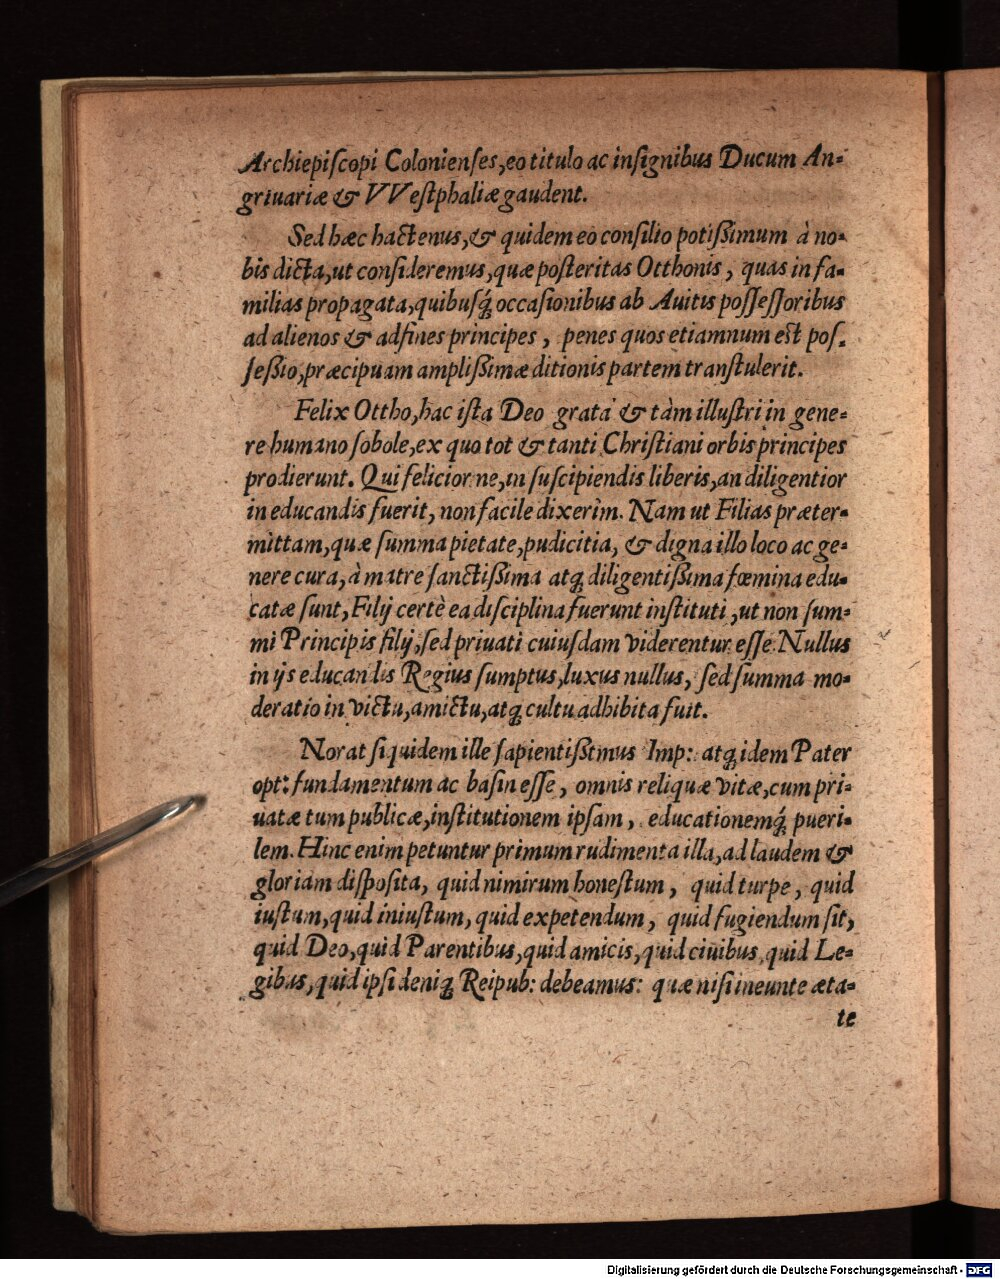 Archiepiſcopi Colonienſes, eo titulo ac inſignibus Ducum An-
griuariæ & VVeſtphaliæ gaudent.
Sed hæc hactenus, & quidem eo conſilio potiſsimum à no-
bis dicta, ut conſideremus, quæ poſteritas Otthonis, quas in fa-
milias propagata, quibuſq́; occaſionibus ab Auitis poſſeſſoribus
ad alienos & adfines principes, penes quos etiamnum est poſ-
ſeſsio, præcipuam ampliſsimæ ditionis partem tranſtulerit.
Felix Ottho, hac iſta Deo grata & tàm illuſtri in gene-
re humano ſobole, ex quo tot & tanti Chriſtiani orbis principes
prodierunt. Qui felicior ne, in ſuſcipiendis liberis, an diligentior
in educandis fuerit, non facile dixerim. Nam ut Filias præter-
mittam, quæ ſumma pietate, pudicitia, & digna illo loco ac ge-
nere cura, à matre ſanctiſsima atq; diligentiſsima fœmina edu-
catæ ſunt, Filij certè ea diſciplina fuerunt inſtituti, ut non ſum-
mi Principis filij, ſed priuati cuiuſdam viderentur eſſe. Nullus
in ijs educandis Regius ſumptus, luxus nullus, ſed ſumma mo-
deratio in victu, amictu, atq; cultu adhibita fuit.
Norat ſiquidem ille ſapientiſsimus Imp: atq; idem Pater
opt: fundamentum ac baſin eſſe, omnis reliquæ vitæ, cum pri-
uatæ tum publicæ, inſtitutionem ipſam, educationemq́; pueri-
lem. Hinc enim petuntur primum rudimenta illa, ad laudem &
gloriam diſpoſita, quid nimirum honeſtum, quid turpe, quid
iuſtum, quid iniuſtum, quid expetendum, quid fugiendum ſit,
quid Deo, quid Parentibus, quid amicis, quid ciuibus, quid Le-
gibus, quid ipſi deniq; Reipub: debeamus: quæ niſi ineunte æta-
te
Digitalisierung gefördert durch die Deutsche Forschungsgemeinschaft - DFG